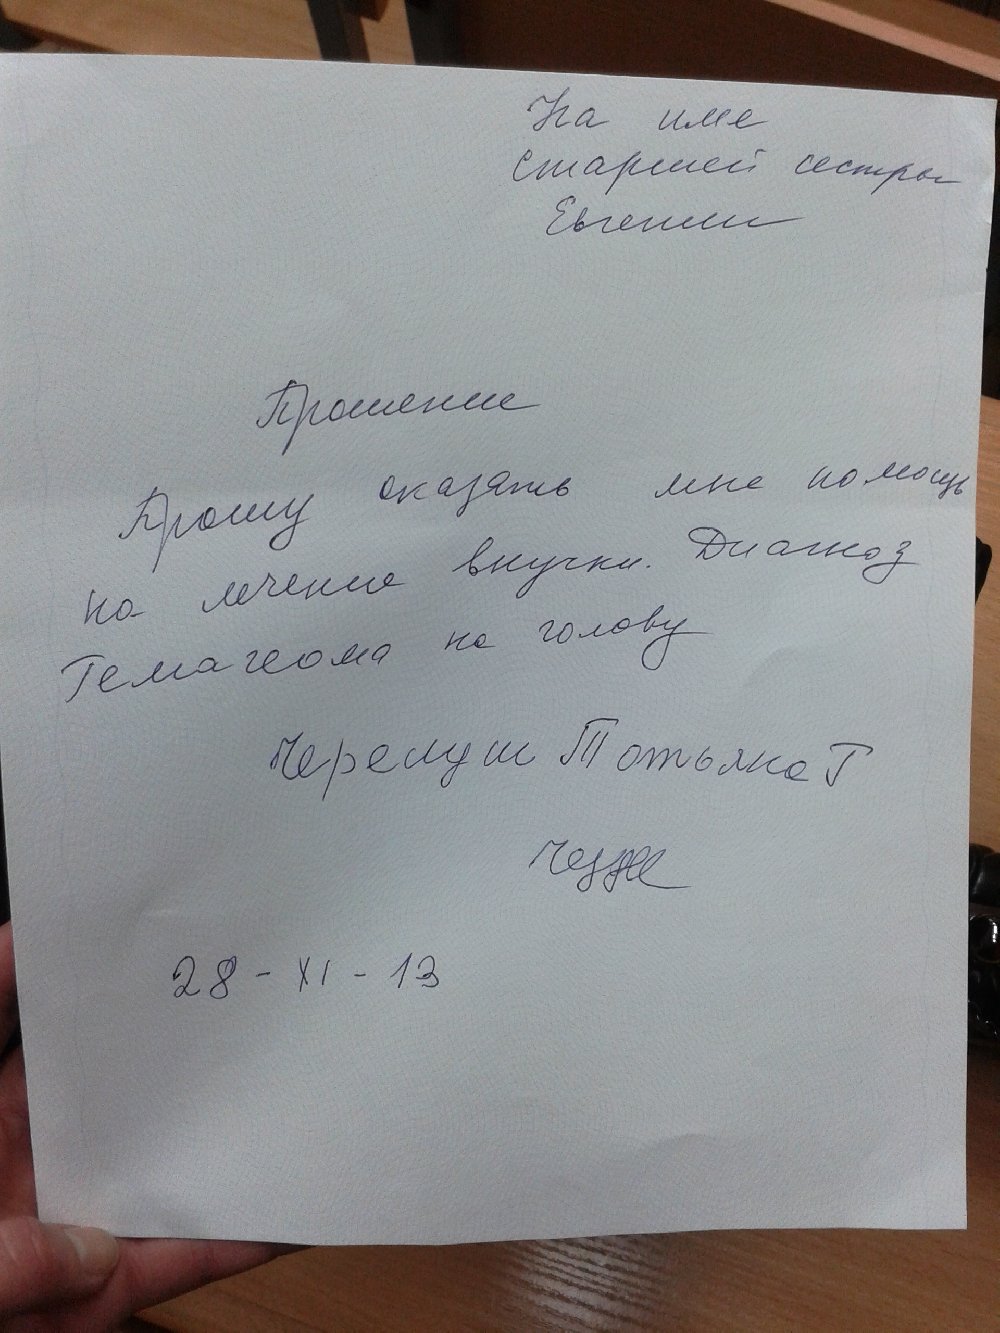 На име
старшей сестры
Евгении
Прошение
Прошу оказать мне помощь
на лечение внучки. Диагноз
Гемагеома на голову
Татьяна Г
28-XI-13